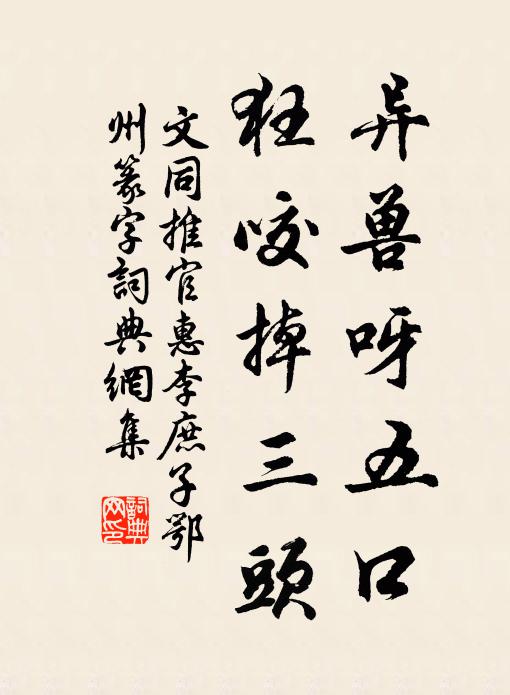 异兽呀五口
狂咬掉三頭
文同推官惠李庶子鄂
州篆字詞典網集
詞典
网印